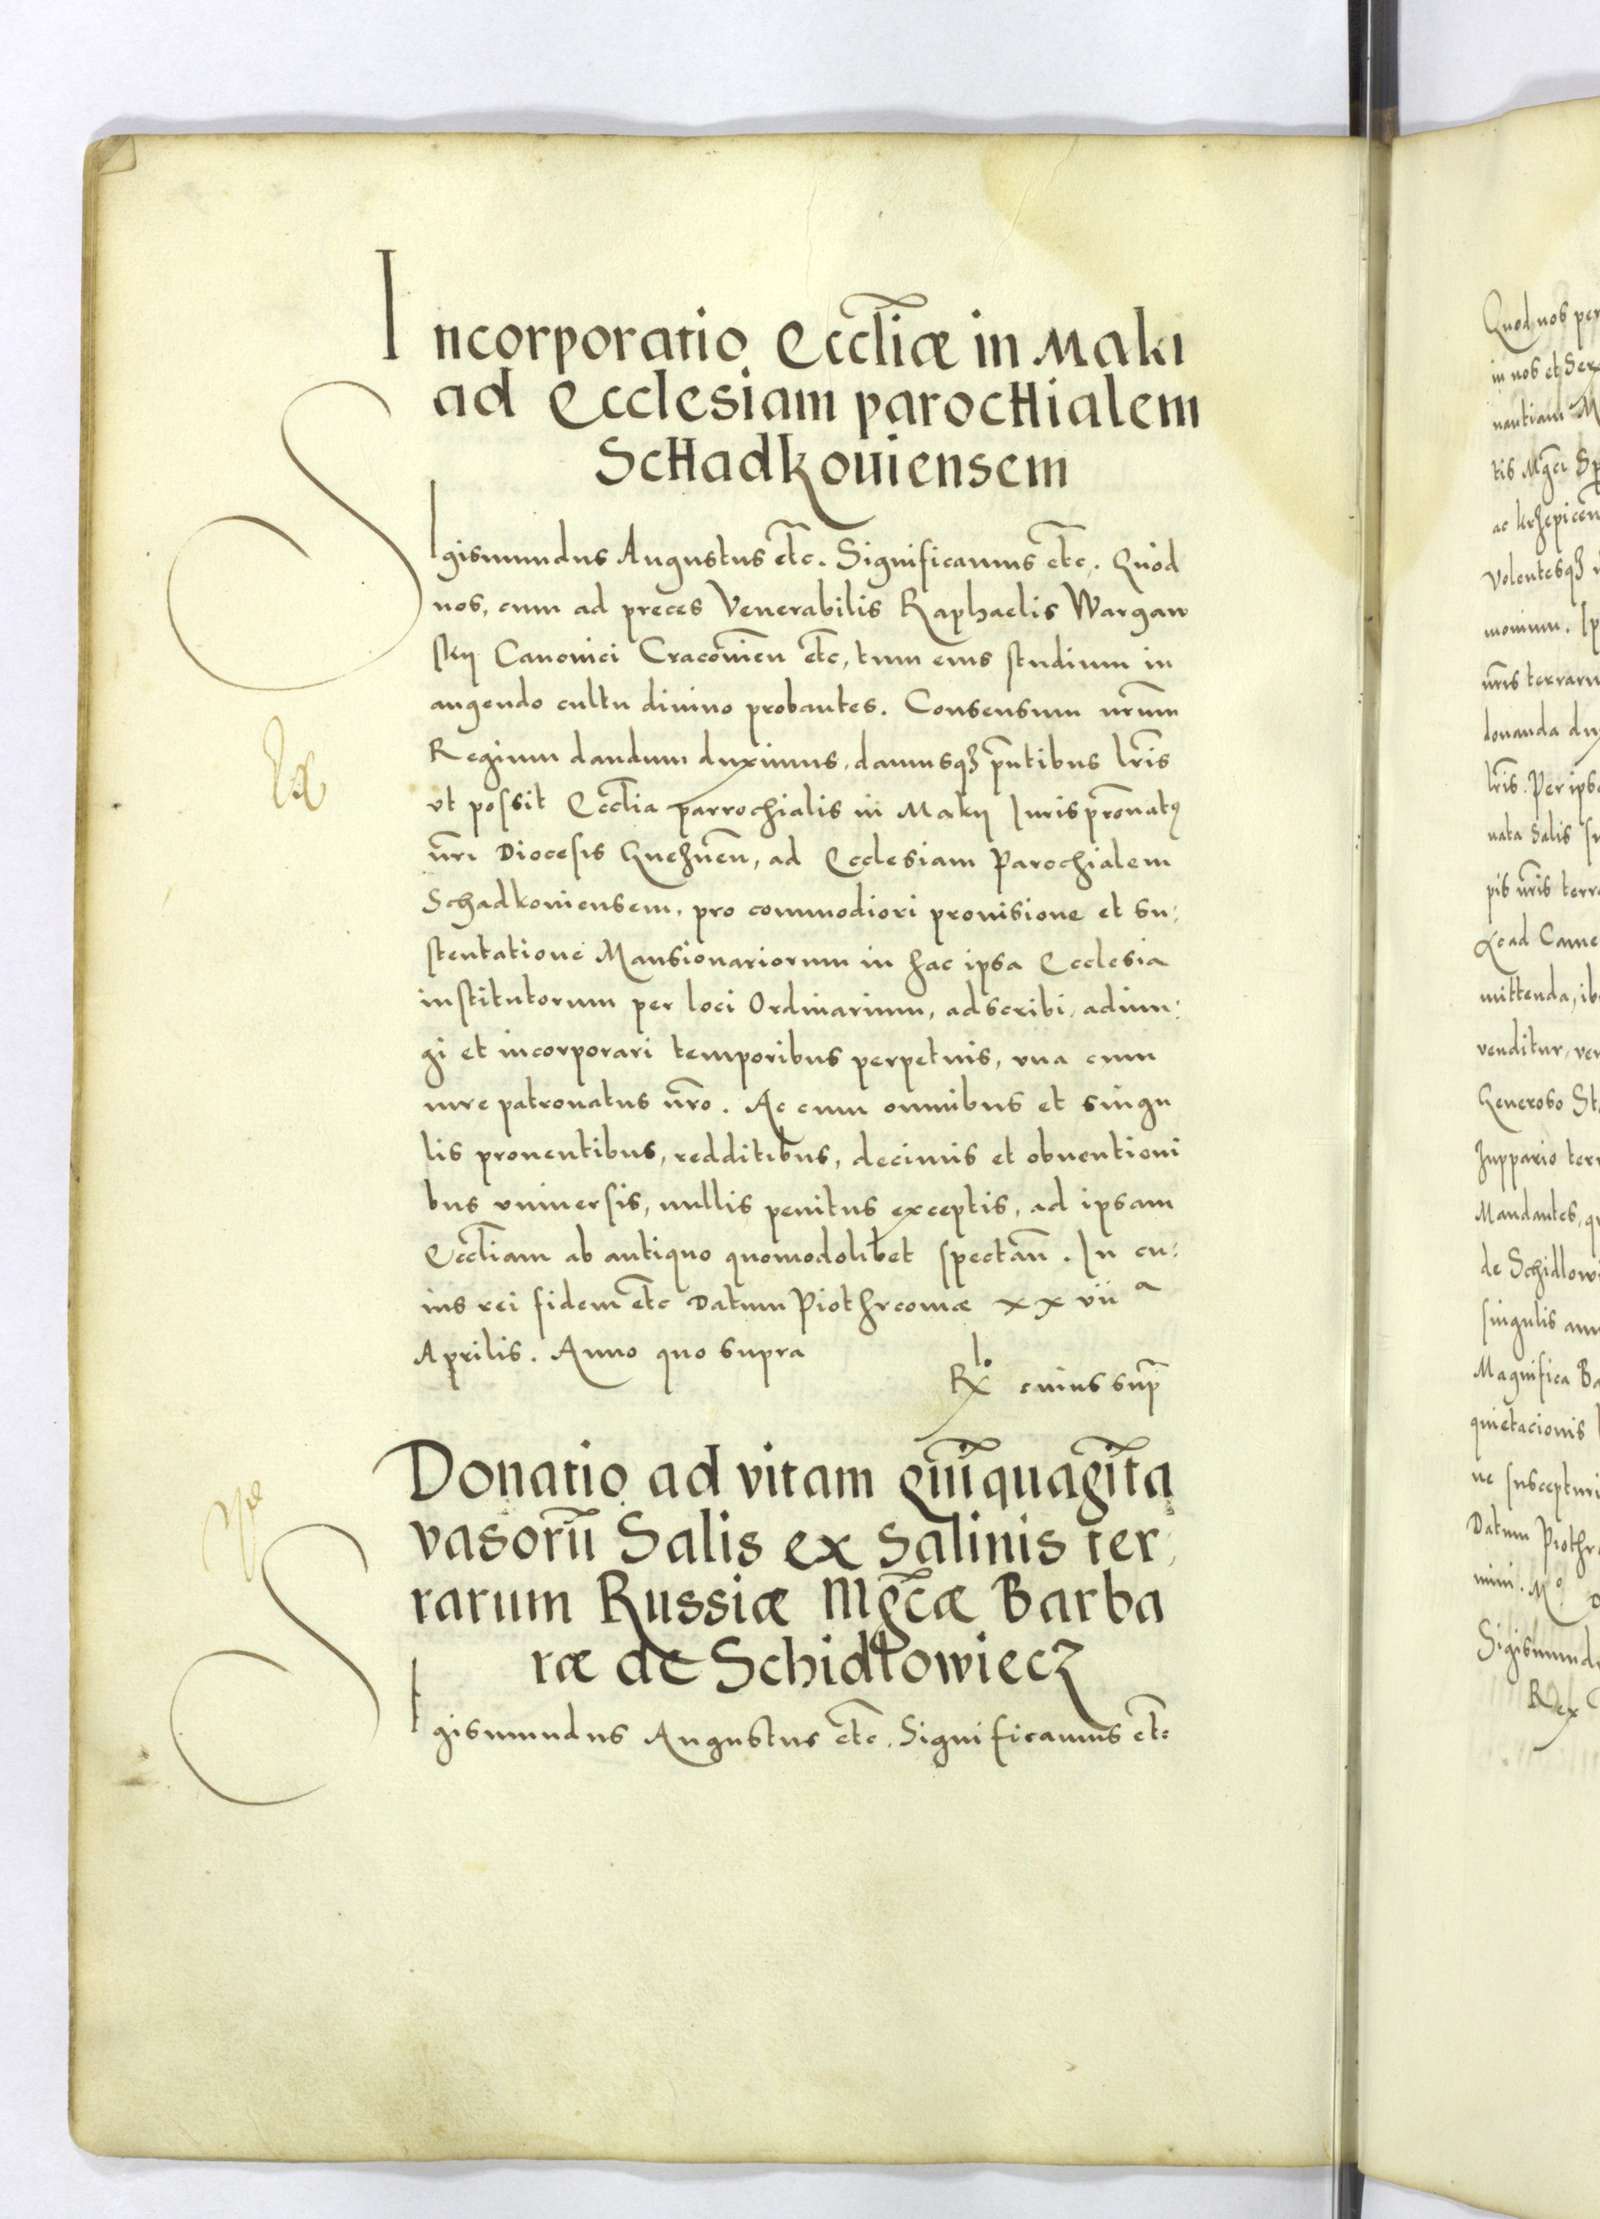 Incorporatio Eccl̃iæ in Maki
ad Ecclesiam parochialem
Schadkouiensem
Sigismundus Augustus etc̃. Significamus etc̃. Quod
nos, cum ad preces Venerabilis Raphaelis Wargaw
skÿ Canonici Cracouien̄ etc̃, tum eius studium in
augendo cultu diuino probantes. Consensum nr̃um
Regium dandum duximus, damusqꝫ pñtibus lr̃is
vt possit Eccl̃ia parrochialis in Makÿ Iurispr̃onatꝰ
nr̃i Diocesis Gnezneñ, ad Ecclesiam Parochialem
Schadkouiensem, pro commodiori prouisione et su:
stentatione Mansionariorum in hac ipsa Ecclesia
institutorum per loci Ordinarium, adscribi, adiun:
gi et incorporari temporibus perpetuis, vna cum
iure patronatus nr̃o. Ac cum omnibus et singu
lis prouentibus, redditibus, decimis et obuentioni
bus vniuersis, nullis penitus exceptis, ad ipsam
Eccl̃iam ab antiquo quomodolibet spectañ. In cu:
ius rei fidem etc̃ Datum Piothrcouiæ xxvii a
Aprilis. Anno quo supra
Rlo cuius sup̃
Donatio ad vitam quı̃quagĩta
vasorũ Salis ex Salinis ter,
rarum Russiæ Mgc̃æ Barba
ræ de Schidłowiecz
Sigismundus Augustus etc̃. Significamus etc̃
Quod nos per
in nos et Ser
nantiam M
tis Mgci Sp
ac krzepicen̄
Volentesqꝫ
monium. Ip
nr̃is terraru
donanda du
lr̃is. Per ips
nata Salis su
pis nr̃is terr
mittenda, ib
venditur, ve
Generoso St
Zuppario ter
Mandantes, q
de Schidlow
singulis ann
Magnifica Ba
quietacionis
ne suscepturi
Datum Piothr
Sigismund
Rex